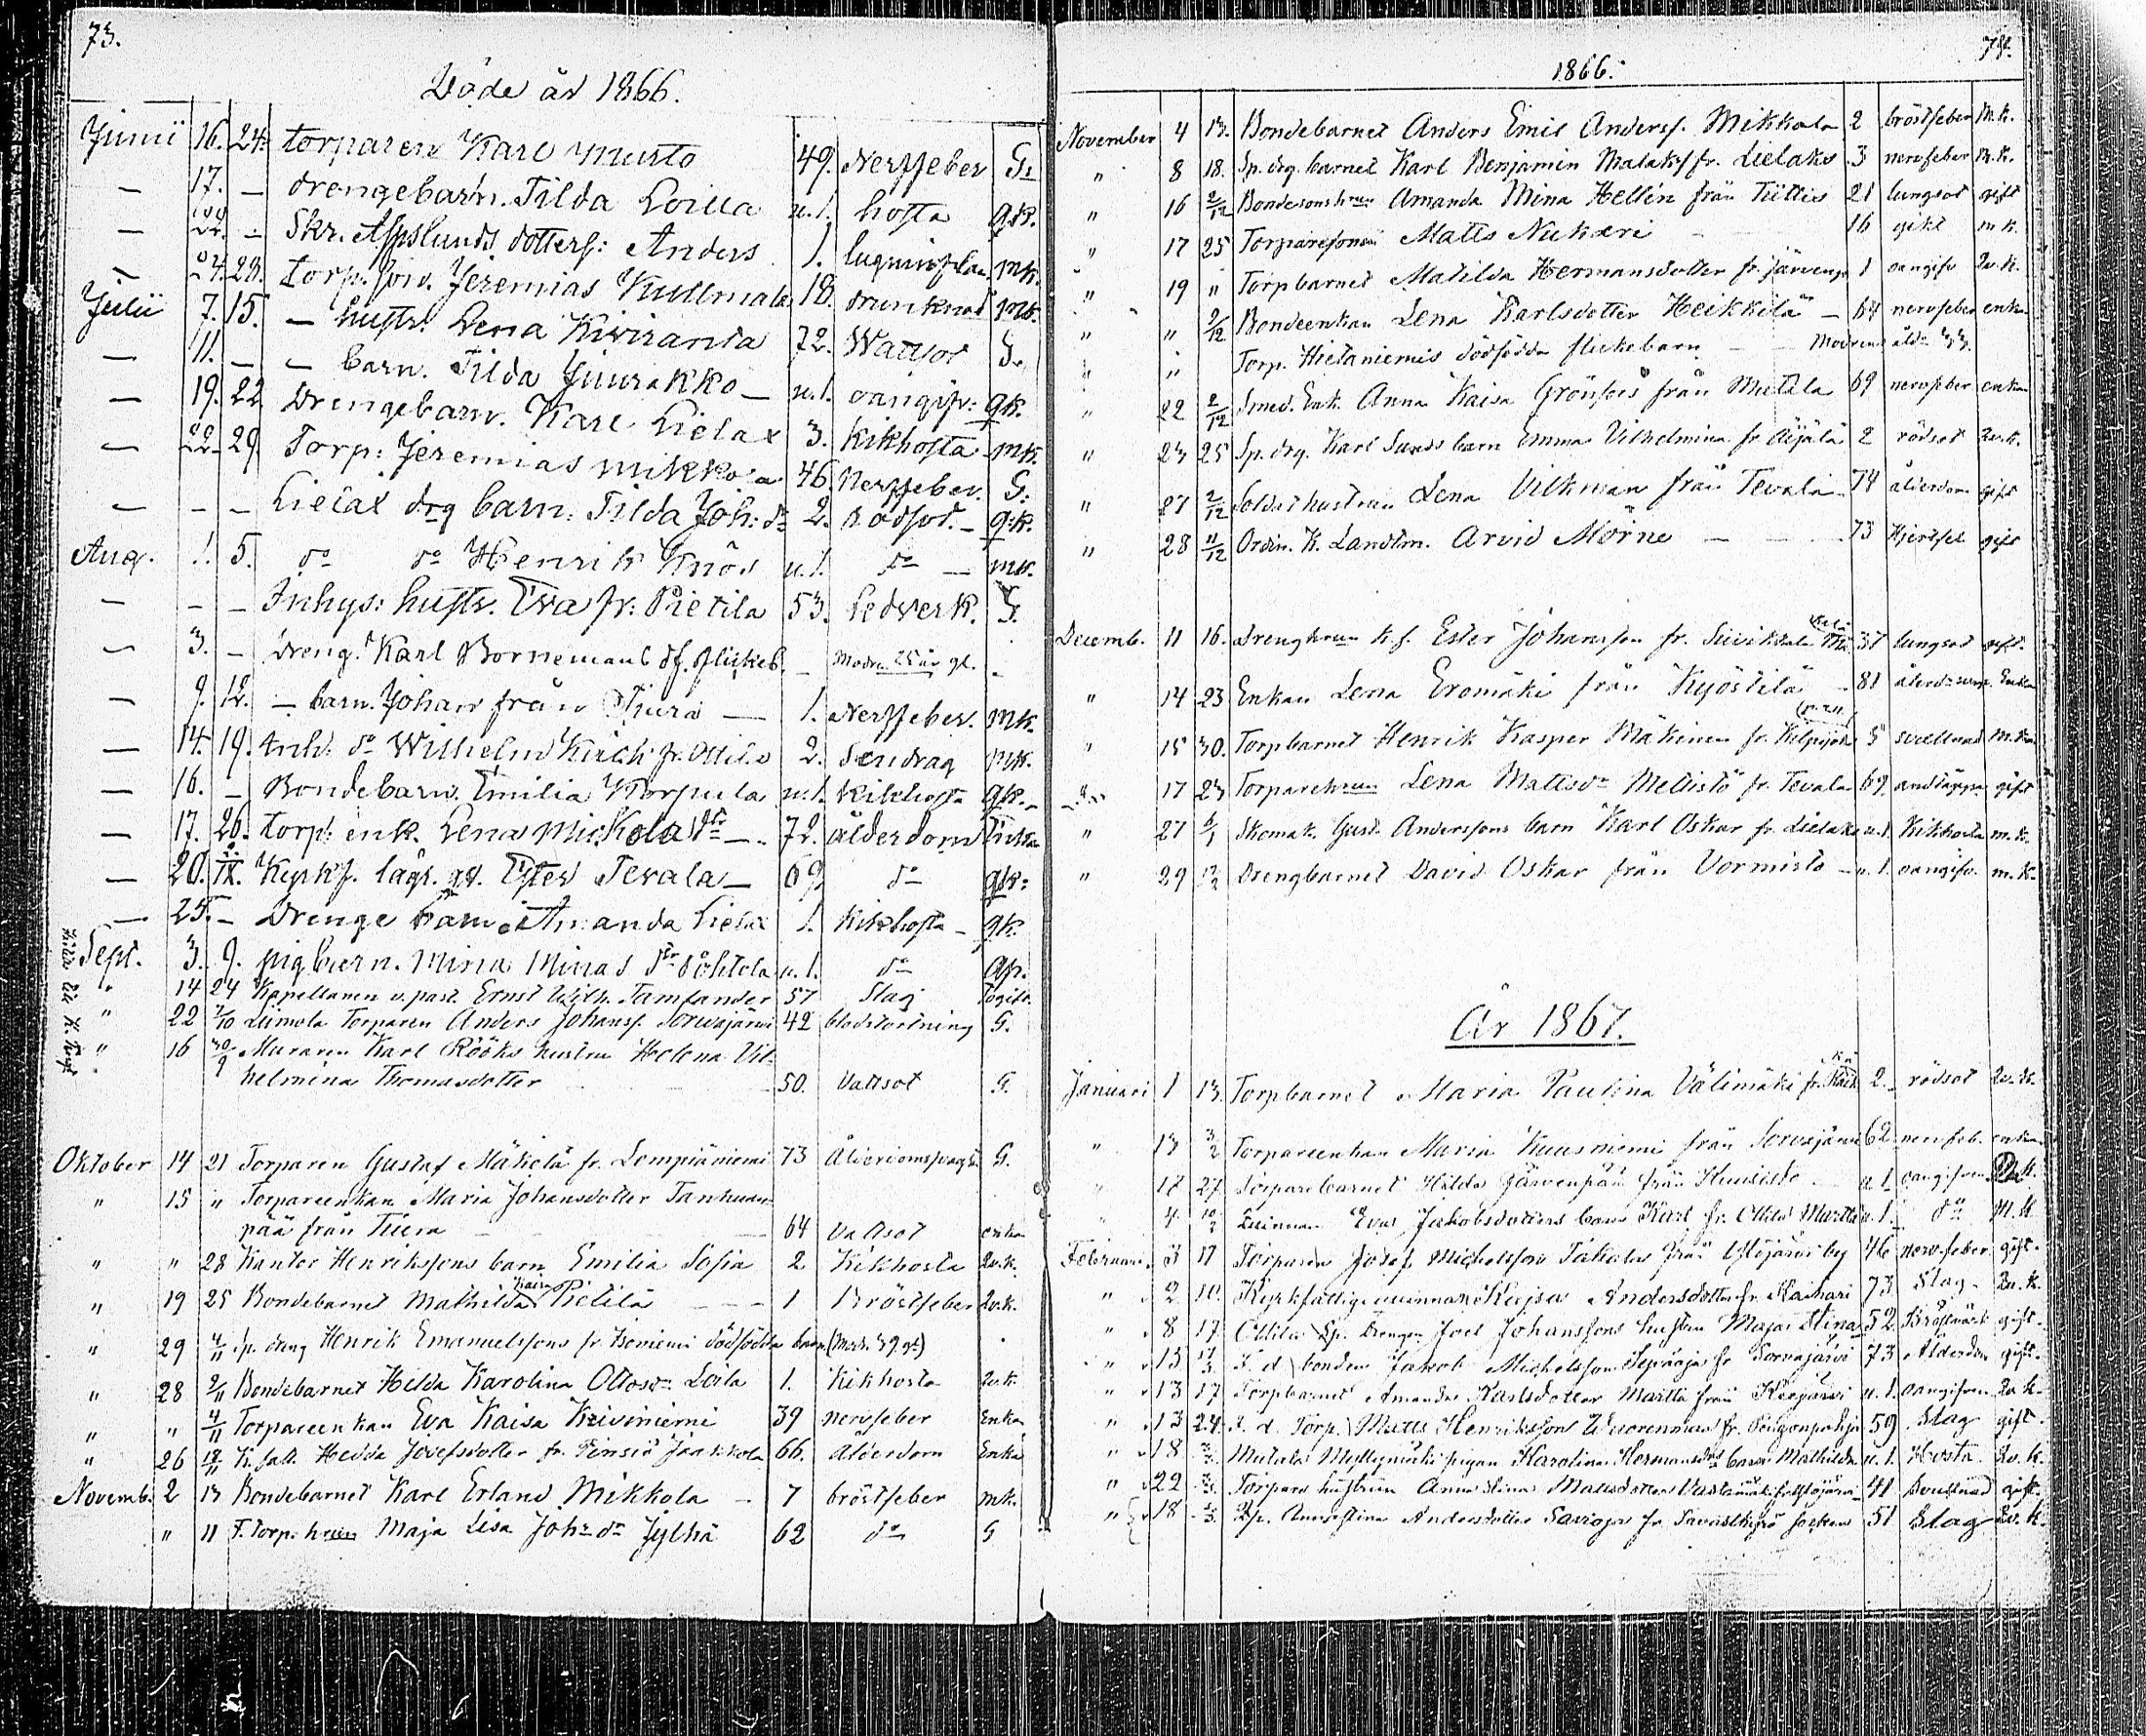 73.
Döde år 1866.
Junii 16. 24. torparen Karl Musto 49. Nerffeber G.
— 17. — drengebarn. Tilda Loilla u.1. hosta qk.
— 22. — Skr. Asplunds dotters: Anders 1. mk.
— 24. 28. torp. son. Jeremias 18. drunknad mk.
Julii 7. 15. — hustr. Lena Kiviranta 72. Wattsot G.
— 11. — — barn. Tilda Juurakko — u.1. oangifv: qk.
— 19. 22 Drengebarn. Karl Lielax 3. Kikhosta mk.
— 22. 29. Torp: Jeremias Mikkola 46. Nerffeber. G.
— — — Lielax drg barn: Tilda Joh: dr 2. Rödsot. — q.k.
Aug. 1. 5. do do Henrik Knös u.1. do — mk.
— — — Inhys: hustr. Eva fr: Pietila 53. Ledverk. G.
— 3. — Dreng. Karl Bornemans df. flickeb. — Modren 25 år gl. —
— 9. 12. — barn. Johan från Tiura — 1. Nerffeber. mk.
— 14. 19. Inh: do Wilhelm fr. Ottila 2. Sendrag mk.
— 16. — Bondebarn. Emilia Korpula u.1. Kikhosta qk.
— 17. 26. torp: enk. Lena Mickola — 72. ålderdom Enka
— 20. Kyrkf. Ester Tevala — 69. do qk:
— 25. — Drenge barn. Amanda Lielax 1. Kikhosta — qk.
Sept. 3. 9. pigbarn. Mina Minas dr Pohtola u.1. do qp.
" 14 24 Kapellanen v. past. Ernst Wilh. Tamlander 57 Slag ogift.
" 22 1/10 Liimola Torparen Anders Johans. Sorvajärvi 42 blodstortning G.
" 16 30/9 Muraren Karl Rööks hustru Helena Vil-
helmina Thomasdotter 50. Vattsot G.
Oktober 14 21 Torparen Gustaf Mäkelä fr. Lempiäniemi 73 G.
" 15 " Torpareenkan Maria Johansdotter Tanhuan-
pää från Tiura 64 Vattsot enka
" " 28 Kantor Henrikssons barn Emilia Sofia 2 Kikhosta Qv.k.
" 19 25 Bondebarnet Mathilda Kaisa Pietilä — — — 1 Bröstfeber Qv.k.
" 29 4/11 Sp. dreng Henrik Emanuelssons fr. dödfödda barn (Modr. 39 gl.)
" 28 2/11 Bondebarnet Hilda Karolina Ottosdr Loila 1. Kikhosta Qv.k.
" " 4/11 Torpareenkan Eva Kaisa Kiviniemi 39 nervfeber Enka
" 26 18/11 K. fatt. Hedda Josefsdotter fr. Pinsiö Jaakkola 66. Ålderdom Enka
Novemb. 2 13 Bondebarnet Karl Erland Mikkola — 7 bröstfeber mk.
" " 11 F. Torp. hrun Maja Lisa Johsdr Jylhä 62 do G
74.
1866.
November 4 13. Bondebarnet Anders Emil Anderss. Mikkola 2 bröstfeber m.k.
" 8 18. Sp. drg. barnet Karl Benjamin fr. Lielaks 3 nervfeber m.k.
" 16 2/12 Bondesonshrun Amanda Mina Hellén från 21 lungsot gift
" 17 25 Torparesonen Matts Nukari — — 16 gikt m k.
" 19 " Torpbarnet Matilda Hermansdotter fr. Järvenp. 1 oangifv Qv.k.
" " 2/12 Bondeenkan Lena Karlsdotter Heikkilä — 64 nervfeber enka
" " Torp. Hietaniemis dödfödda flickebarn — — Modrens åld. 33.
" 22 2/12 Smed. Enk. Anna Kaisa Grönfors från Mutala 69 nervfeber enka
" 23 25 Sp. drg. Karl Sunds barn Emma Vilhelmina fr. Äijälä 2 rödsot Qv.k.
" 27 2/12 Soldathustrun Lena Vilkman från Tevala 74 ålderdom gift
" 28 11/12 Ordin. K. Landtm. Arvid Mörne — — — 73 Hjertfel gift
Decemb. 11 16. Drenghrun k.f. Ester Johansson fr. 37 lungsot gift.
" 14 23 Enkan Lena Eromäki från Kyöstilä — 81 Enka
" 15 30. Torpbarnet Henrik Kasper Mäkinen fr. 5 svullnad m.k.
" 17 23 Torparehrun Lena Mattsdr Mellistö fr. Tevala 69. andtäppa gift
" 27 6/1 Skomak. Gust. Anderssons barn Karl Oskar fr. Lielaks u.1. Kikhosta m.k.
" 29 Drengbarnet David Oskar från Vormisto — u.1. oangifv. m.k.
År 1867.
Januari 1 13. Torpbarnet Maria Paulina Välimäki fr. 2. rödsot Qv.k.
" 13 3/2 Torpareenkan Maria Kuusniemi från Sorvajärvi 62 nervfeb. enka.
" 18 27 Torparebarnet Hilda Järvenpää från Huusisto — u 1 oangifven Qv.k.
" 4. 10/2 Qvinnan Evas Jakobsdotters barn Karl fr. Ottila Martta u.1. do M.k.
Februari 3 17 Torparen Josef Michelsson Takala från Ylöjärvi by 46 nervfeber gift.
" 2 10. Kyrkfattig qvinnan Kajsa Andersdotter fr. Kaihari 73. Slag. Qv.k.
" 8 17 Ottila Sp. Drengen Joel Johanssons hustru Maja Stina 52 gift.
" 15 F. d. bonden Jakob Michelsson fr. Sorvajärvi 73 Ålderdom gift.
" 13 17 Torpbarnet Amanda Karlsdotter Martta från Keijärvi u.1. oangifven Qv.k.
" 13 24. F. d. Torp. Matts Henriksson fr. 59 Slag gift.
" 18 Mutala Myllymäki pigan Karolina Hermansdrs barn Mathilda u.1. Hosta. Qv.k.
" 22 Torpare hustrun Anna Stina Mattsdotter 41 Svullnad gift.
" 18 Annastina Andersdotter Savioja fr. Tavastkyrö socken 51 Slag Qv.k.